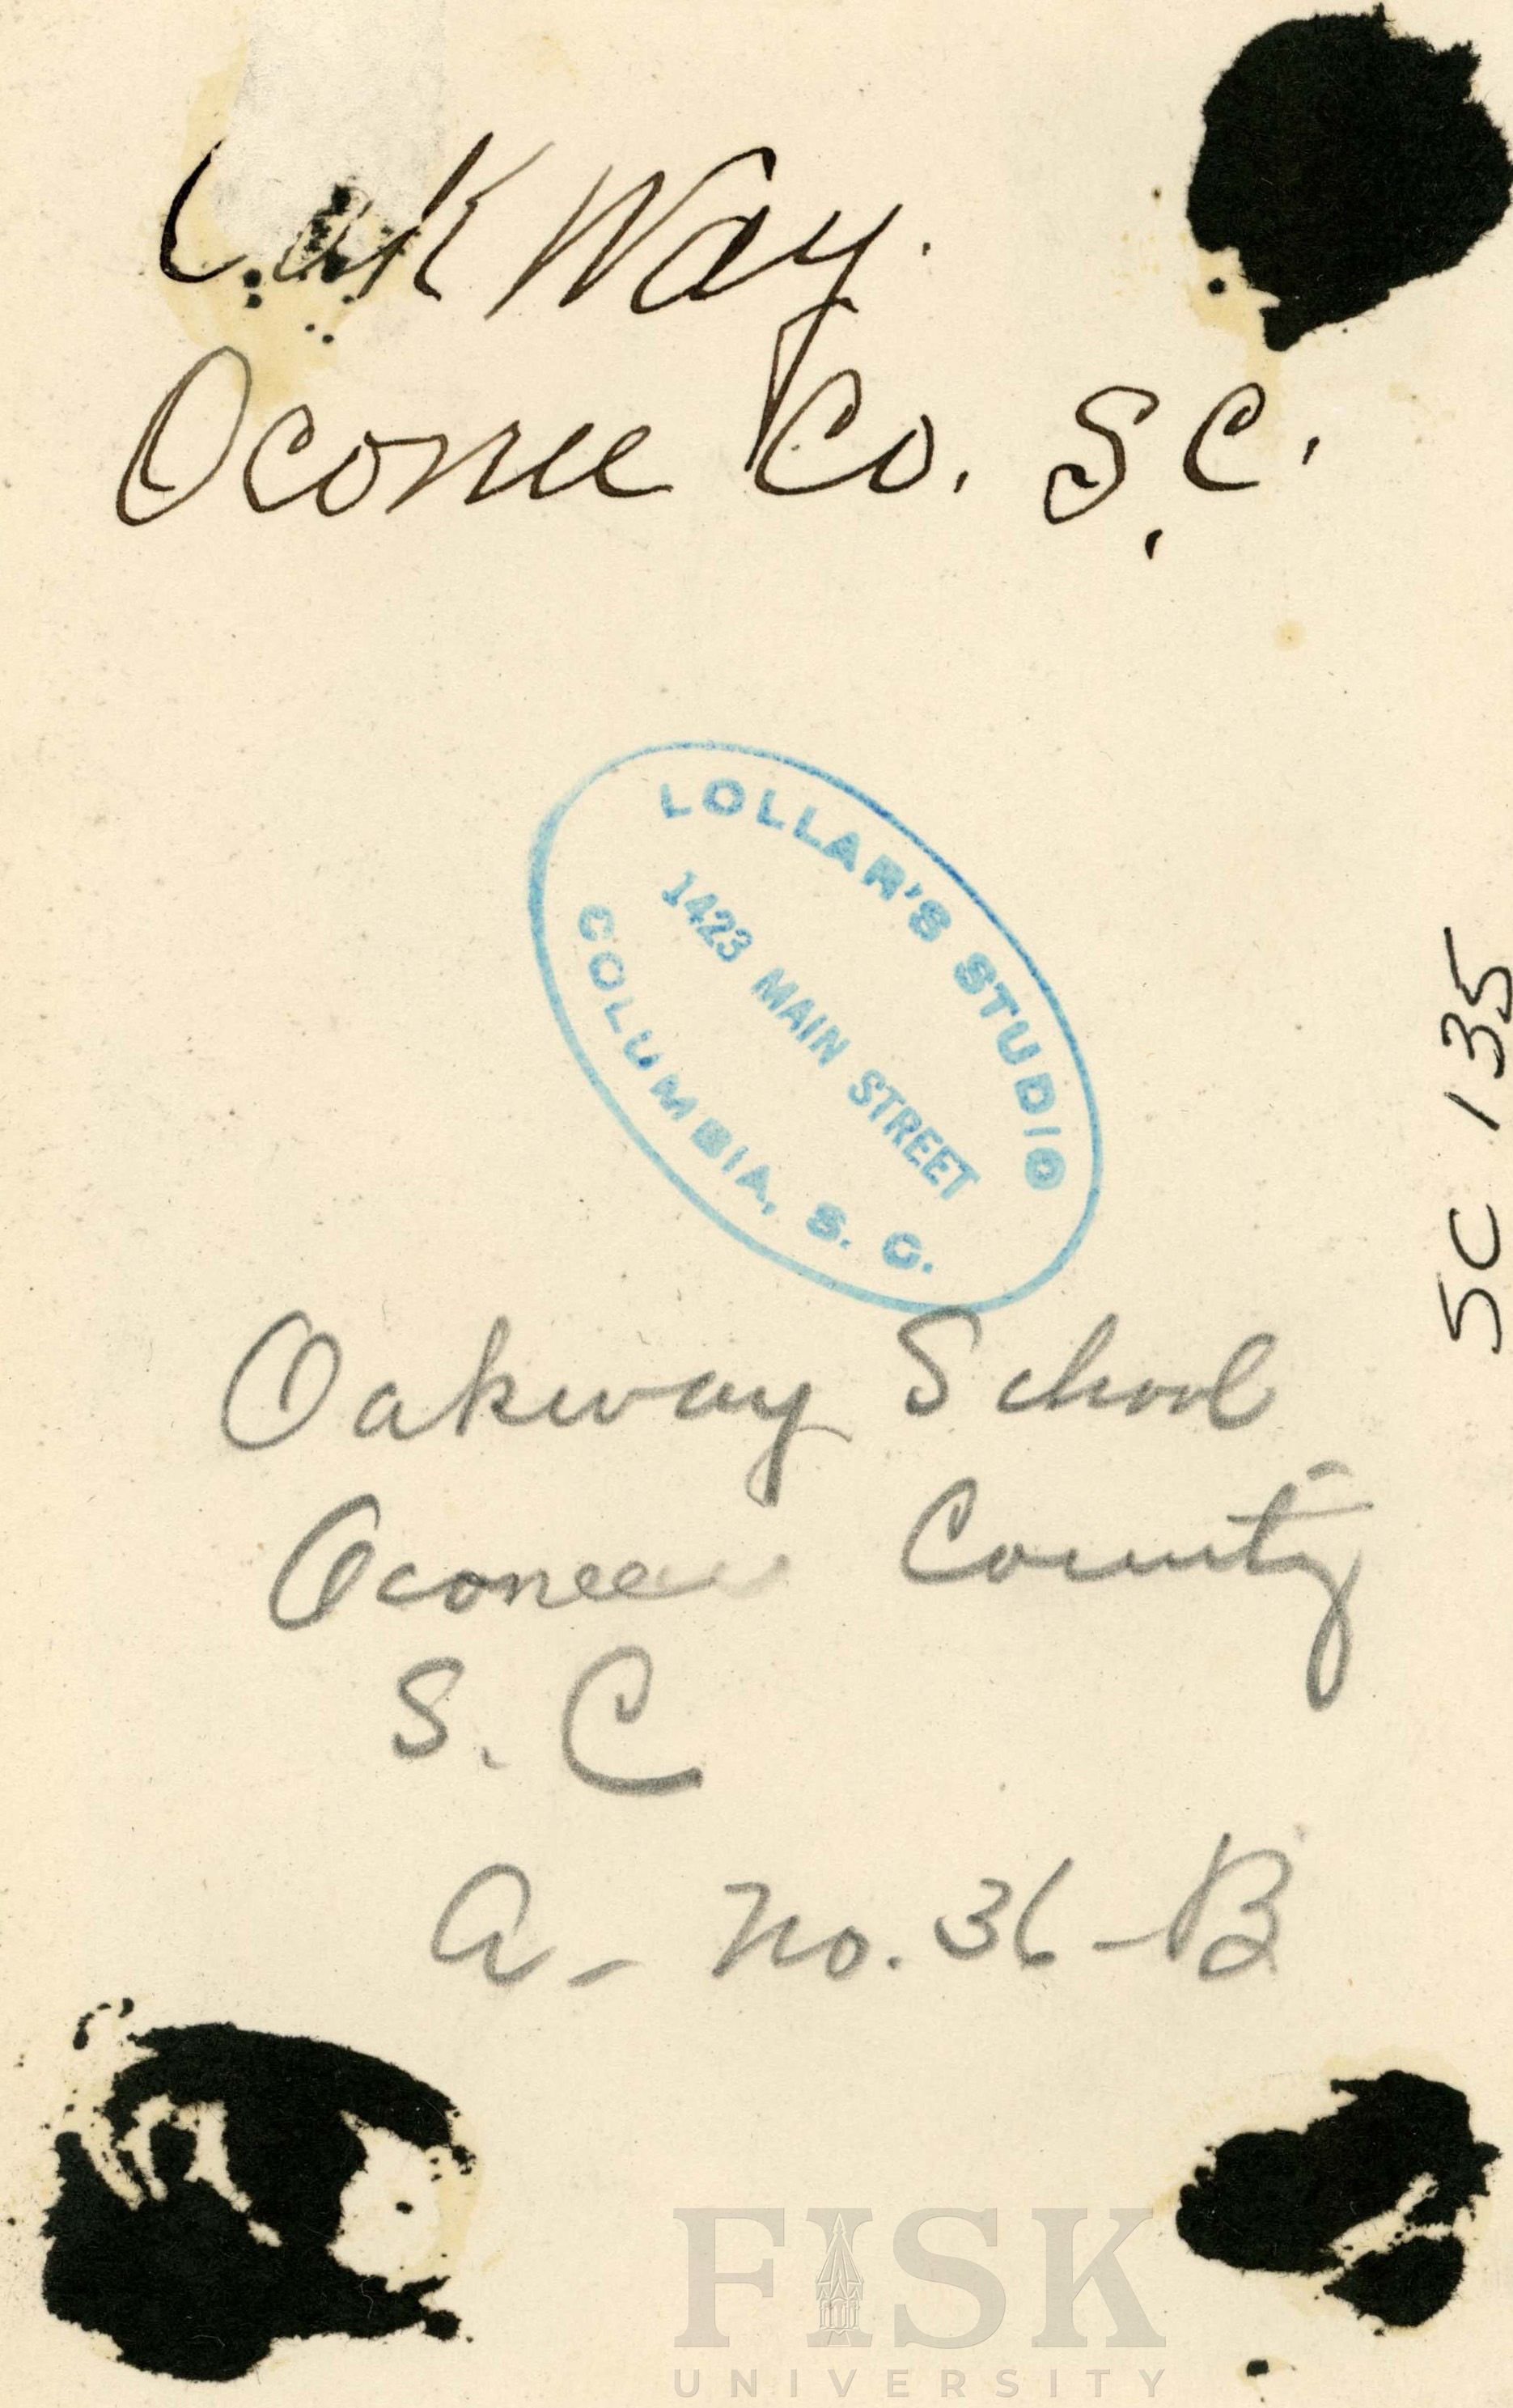 Oak Way.
Oconee Co. S.C.
LOLLAR'S STUDIO
1423 MAIN STREET
COLUMBIA, S. C.
SC 135
Oakway School
Oconee County
S. C
A - No. 36 - B
FISK
UNIVERSITY